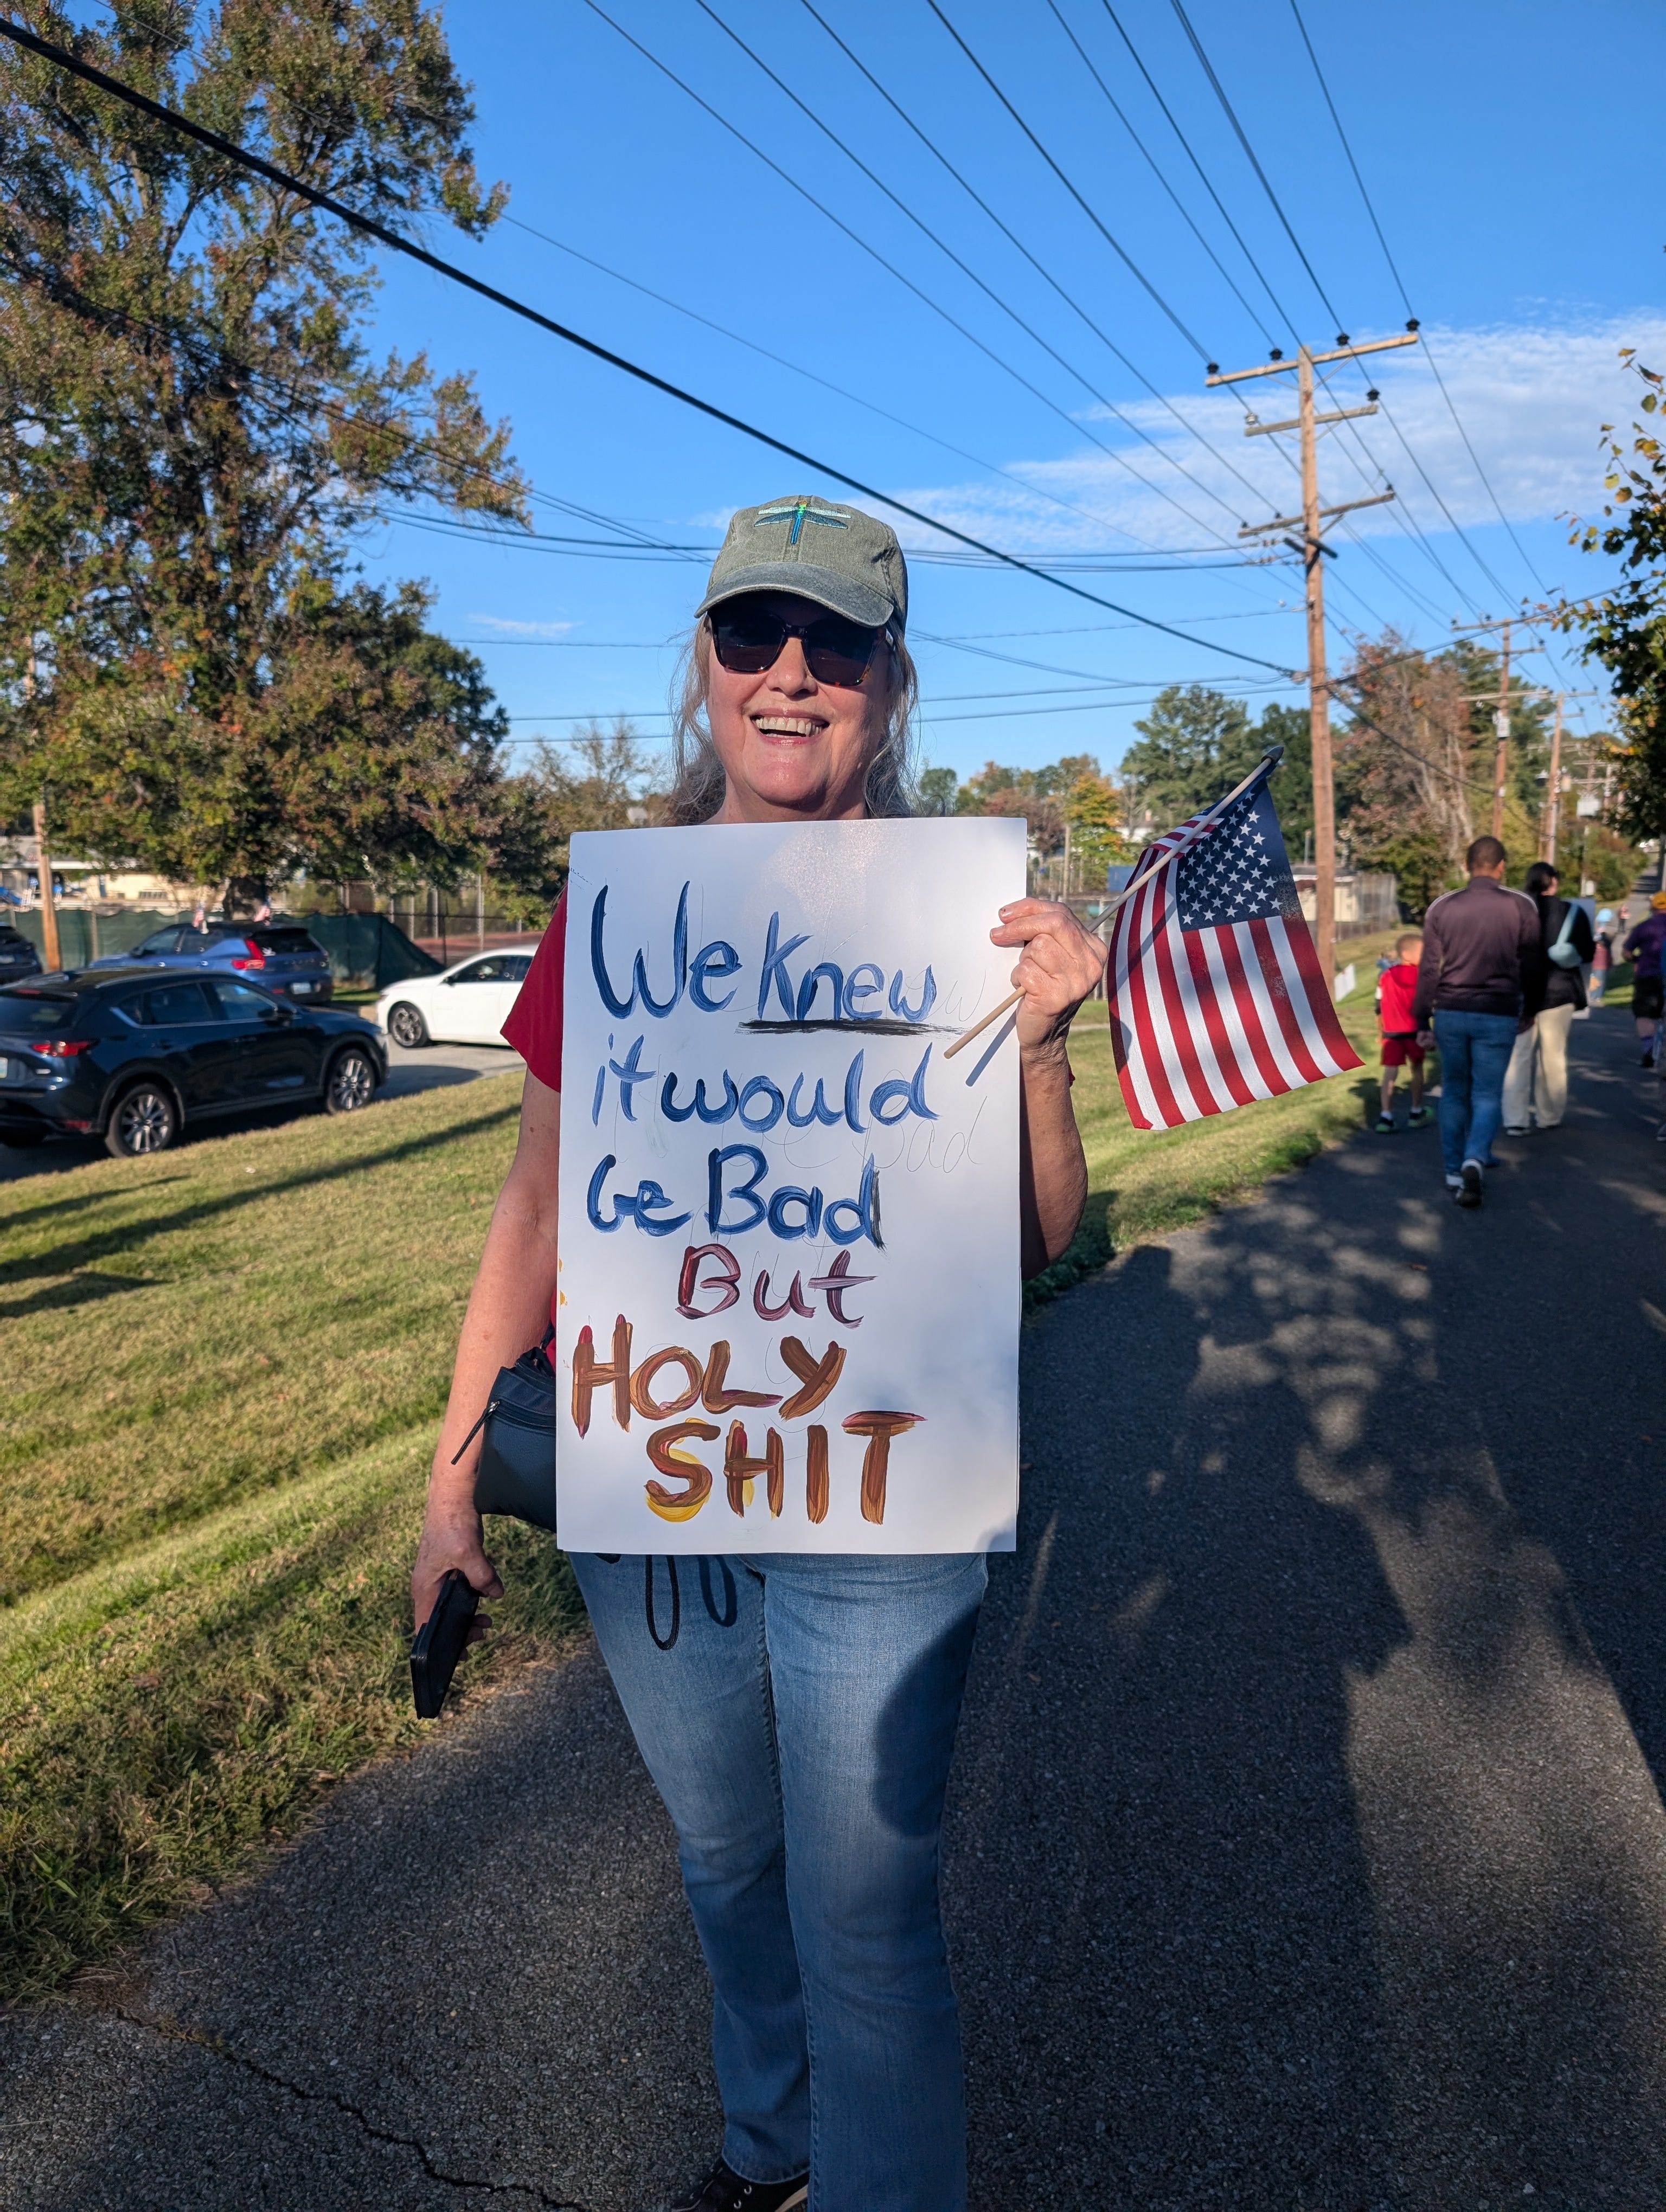 We Knew
it would
be Bad
But
HOLY
SHIT